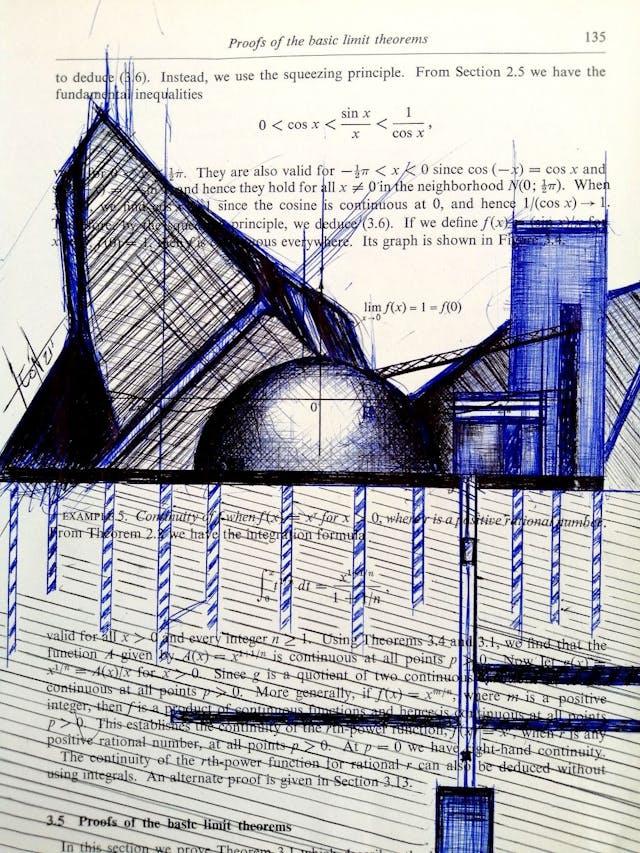 Proofs of the basic limit theorems 135
to deduce (3.6). Instead, we use the squeezing principle. From Section 2.5 we have the
fundamental inequalities
0 < cos x < sin x / x < 1 / cos x ,
½π. They are also valid for −½π < x < 0 since cos (−x) = cos x and
and hence they hold for all x ≠ 0 in the neighborhood N(0; ½π). When
since the cosine is continuous at 0, and hence 1/(cos x) → 1.
principle, we deduce (3.6). If we define f(x)
everywhere. Its graph is shown in Figure 3.4.
lim x→0 f(x) = 1 = f(0)
0
EXAMPLE 5. Continuity of f when f(x) = xʳ for x > 0, where r is a positive rational number.
From Theorem 2.2 we have the integration formula
dt =
valid for all x > 0 and every integer n ≥ 1. Using Theorems 3.4 and 3.1, we find that the
function A given by A(x) = x^{1+1/n} is continuous at all points p > 0. Now let g(x) =
x^{1/n} = A(x)/x for x > 0. Since g is a quotient of two continuous
continuous at all points p > 0. More generally, if f(x) = x^{m/n}, where m is a positive
integer, then f is a product of continuous functions and hence is continuous at all points
p > 0. This establishes the continuity of the rth-power function, when r is any
positive rational number, at all points p > 0. At p = 0 we have right-hand continuity.
The continuity of the rth-power function for rational r can also be deduced without
using integrals. An alternate proof is given in Section 3.13.
3.5 Proofs of the basic limit theorems
In this section we prove Theorem 3.1 which